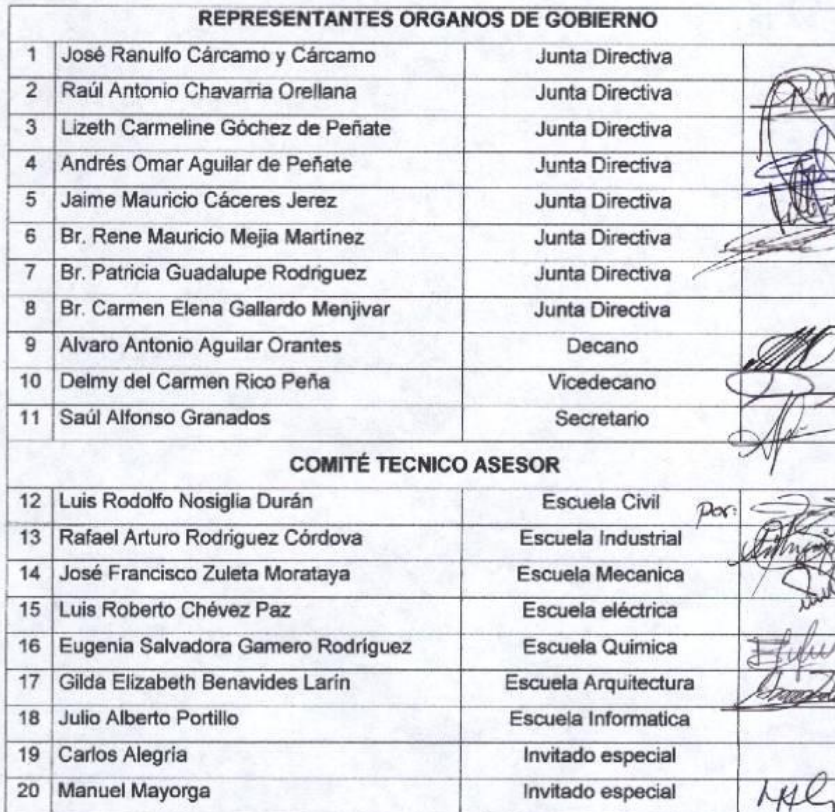 REPRESENTANTES ORGANOS DE GOBIERNO
1 José Ranulfo Cárcamo y Cárcamo Junta Directiva
2 Raúl Antonio Chavarria Orellana Junta Directiva
3 Lizeth Carmeline Góchez de Peñate Junta Directiva
4 Andrés Omar Aguilar de Peñate Junta Directiva
5 Jaime Mauricio Cáceres Jerez Junta Directiva
6 Br. Rene Mauricio Mejia Martinez Junta Directiva
7 Br. Patricia Guadalupe Rodriguez Junta Directiva
8 Br. Carmen Elena Gallardo Menjivar Junta Directiva
9 Alvaro Antonio Aguilar Orantes Decano
10 Delmy del Carmen Rico Peña Vicedecano
11 Saúl Alfonso Granados Secretario
COMITÉ TECNICO ASESOR
12 Luis Rodolfo Nosiglia Durán Escuela Civil por:
13 Rafael Arturo Rodriguez Córdova Escuela Industrial
14 José Francisco Zuleta Morataya Escuela Mecanica
15 Luis Roberto Chévez Paz Escuela eléctrica
16 Eugenia Salvadora Gamero Rodríguez Escuela Quimica
17 Gilda Elizabeth Benavides Larín Escuela Arquitectura
18 Julio Alberto Portillo Escuela Informatica
19 Carlos Alegría Invitado especial
20 Manuel Mayorga Invitado especial